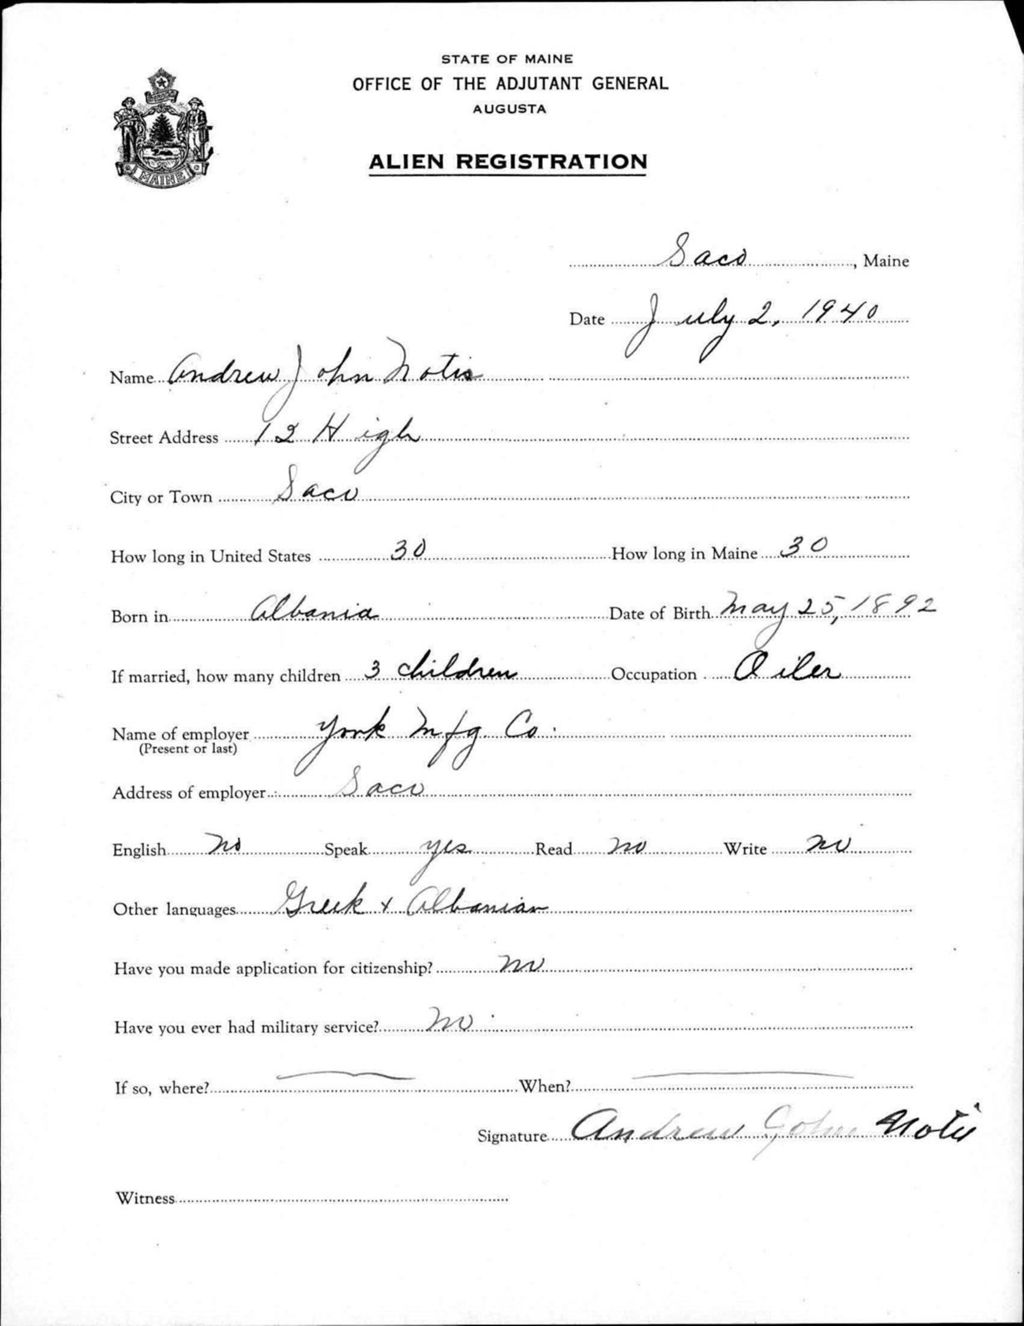 STATE OF MAINE
OFFICE OF THE ADJUTANT GENERAL
AUGUSTA
MAINE
ALIEN REGISTRATION
Saco, Maine
Date July 2, 1940
Name Andrew John Notis
Street Address 12 High
City or Town Saco
How long in United States 30 How long in Maine 30
Born in Albania Date of Birth May 25, 1892
If married, how many children 3 children Occupation Oiler
Name of employer York Mfg Co.
(Present or last)
Address of employer Saco
English No Speak yes Read no Write no
Other languages Greek & Albanian
Have you made application for citizenship? no
Have you ever had military service? no
If so, where? When?
Signature Andrew John Notis
Witness